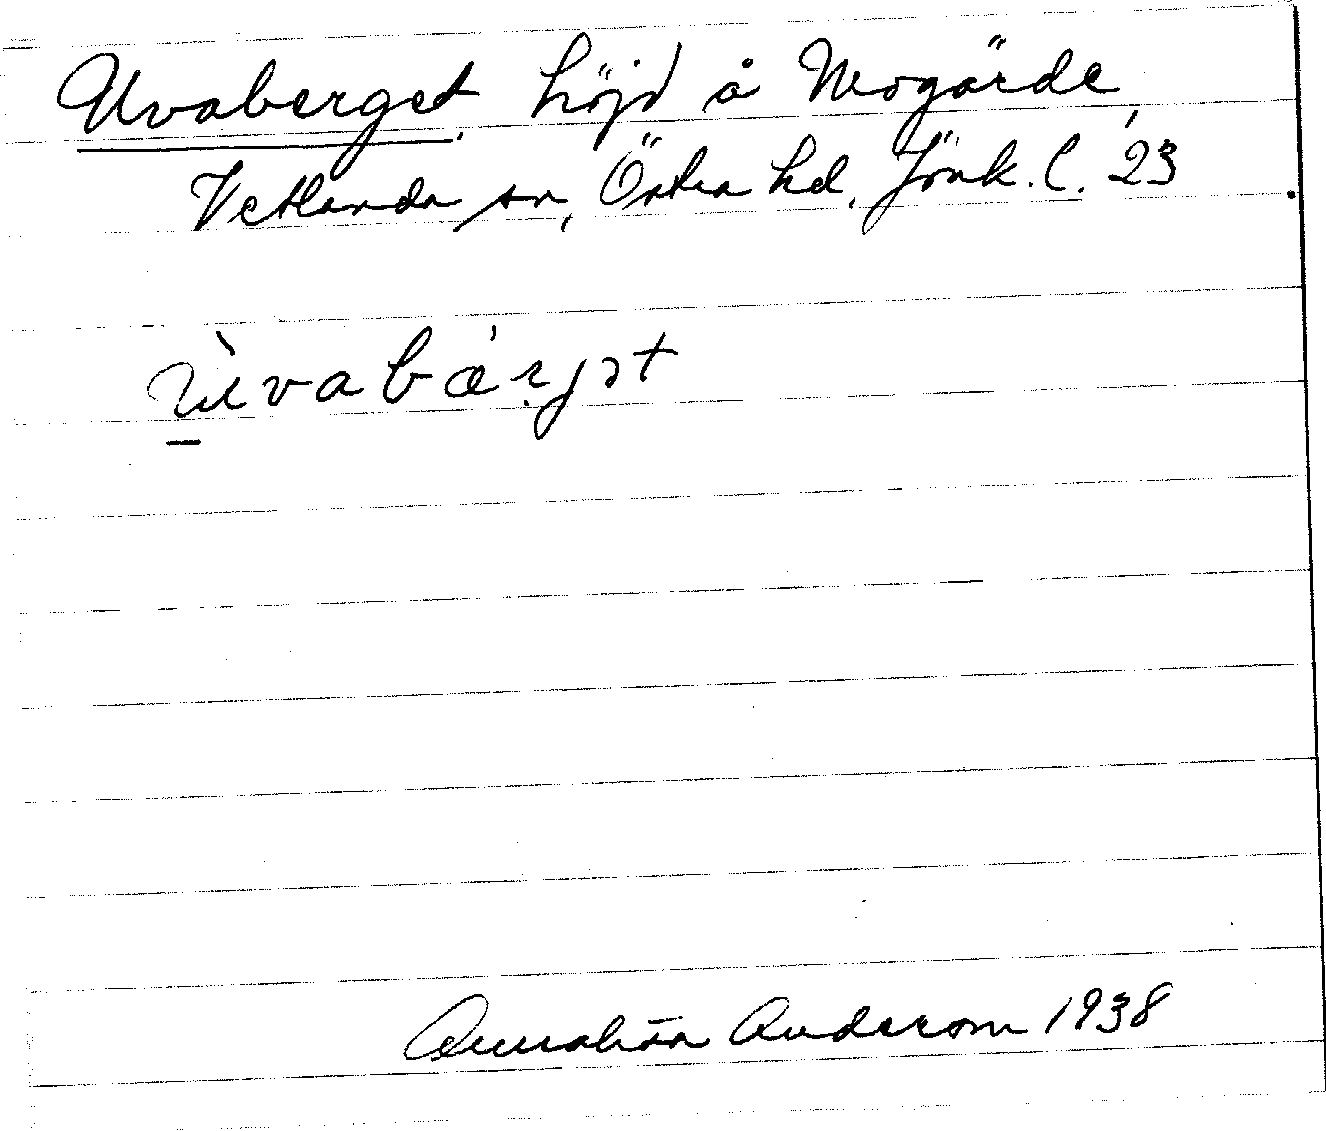 Uvaberget, höjd å Mogärde,
Vetlanda sn, Östra hd, Jönk. l. 23
ùvabárjət
Annalisa Anderson 1938